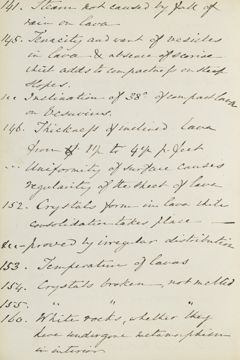 141. Steam not caused by fall of
rain on lava
145. Tenacity and want of vesicles
in lava & absence of scoriae
that adds to compactness on steep
slopes.
Inclination of 38° of compact lava
on Vesuvius.
146. Thickness of inclined lava
from 1½ to 4½ feet
Uniformity of surface causes
regularity of the sheet of lava
152. Crystals form in lava while
consolidation takes place —
proved by irregular distribution
153. Temperature of lavas
154. Crystals broken, not melted
155. " " "
160. White rocks, whether they
have undergone metamorphism
in interior